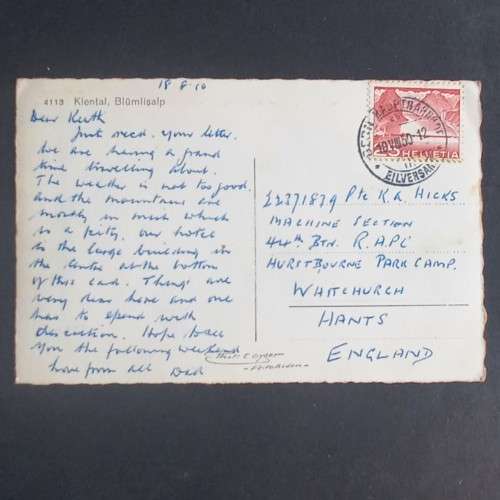 18·8·50
4113 Kiental, Blümlisalp
Dear Keith
Just recd. your letter.
We are having a grand
time travelling about.
The weather is not too good,
and the mountains are
mostly in mist which
is a pity, our hotel
is the large building in
the centre at the bottom
of this card. Things are
very dear here and one
has to spend with
discretion. Hope to see
you the following weekend
love from all Dad
HELVETIA
EILVERSAND
22371839 Pte K.R. HICKS
MACHINE SECTION
44th Btn. R.A.P.C
HURSTBOURNE PARK CAMP.
WHITCHURCH
HANTS
ENGLAND